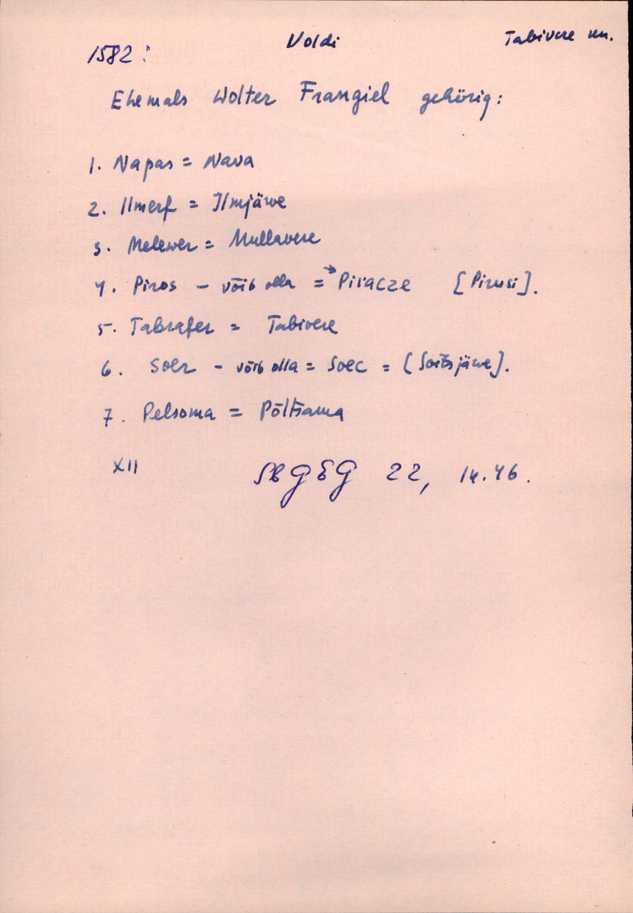 1582: Voldi Tabivere vn.
Ehemals Wolter Frangiel gehörig:
1. Napas = Nava
2. Ilmerf = Ilmjärve
3. Melewer = Mullavere
4. Piros – võib olla = Piracze [Pirusi].
5. Tabrafer = Tabivere
6. Soer – võib olla = Soec = [Soitsjärve].
7. Pelsoma = Põltsama
XII SBGEG 22, 14.46.